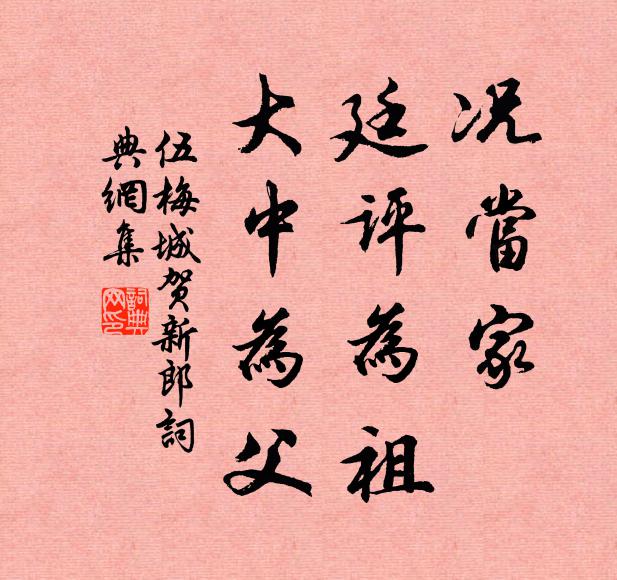 况當家
廷評為祖
大中為父
伍梅城賀新郎詞
典網集
詞典
网印